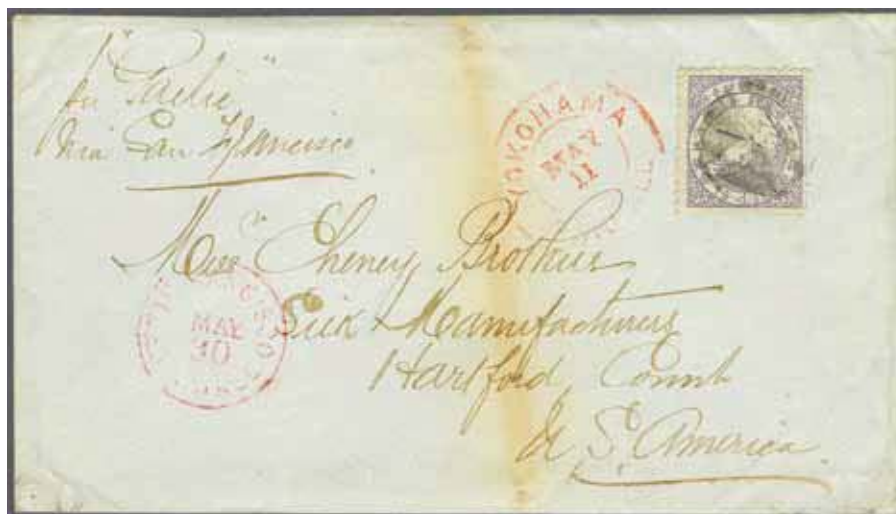 pr "Gaelic"
via San Francisco
YOKOHAMA
MAY
11
Messrs Cheney Brothers
Silk Manufacturers
Hartford, Connt
U. S. America
SAN FRANCISCO
MAY
30